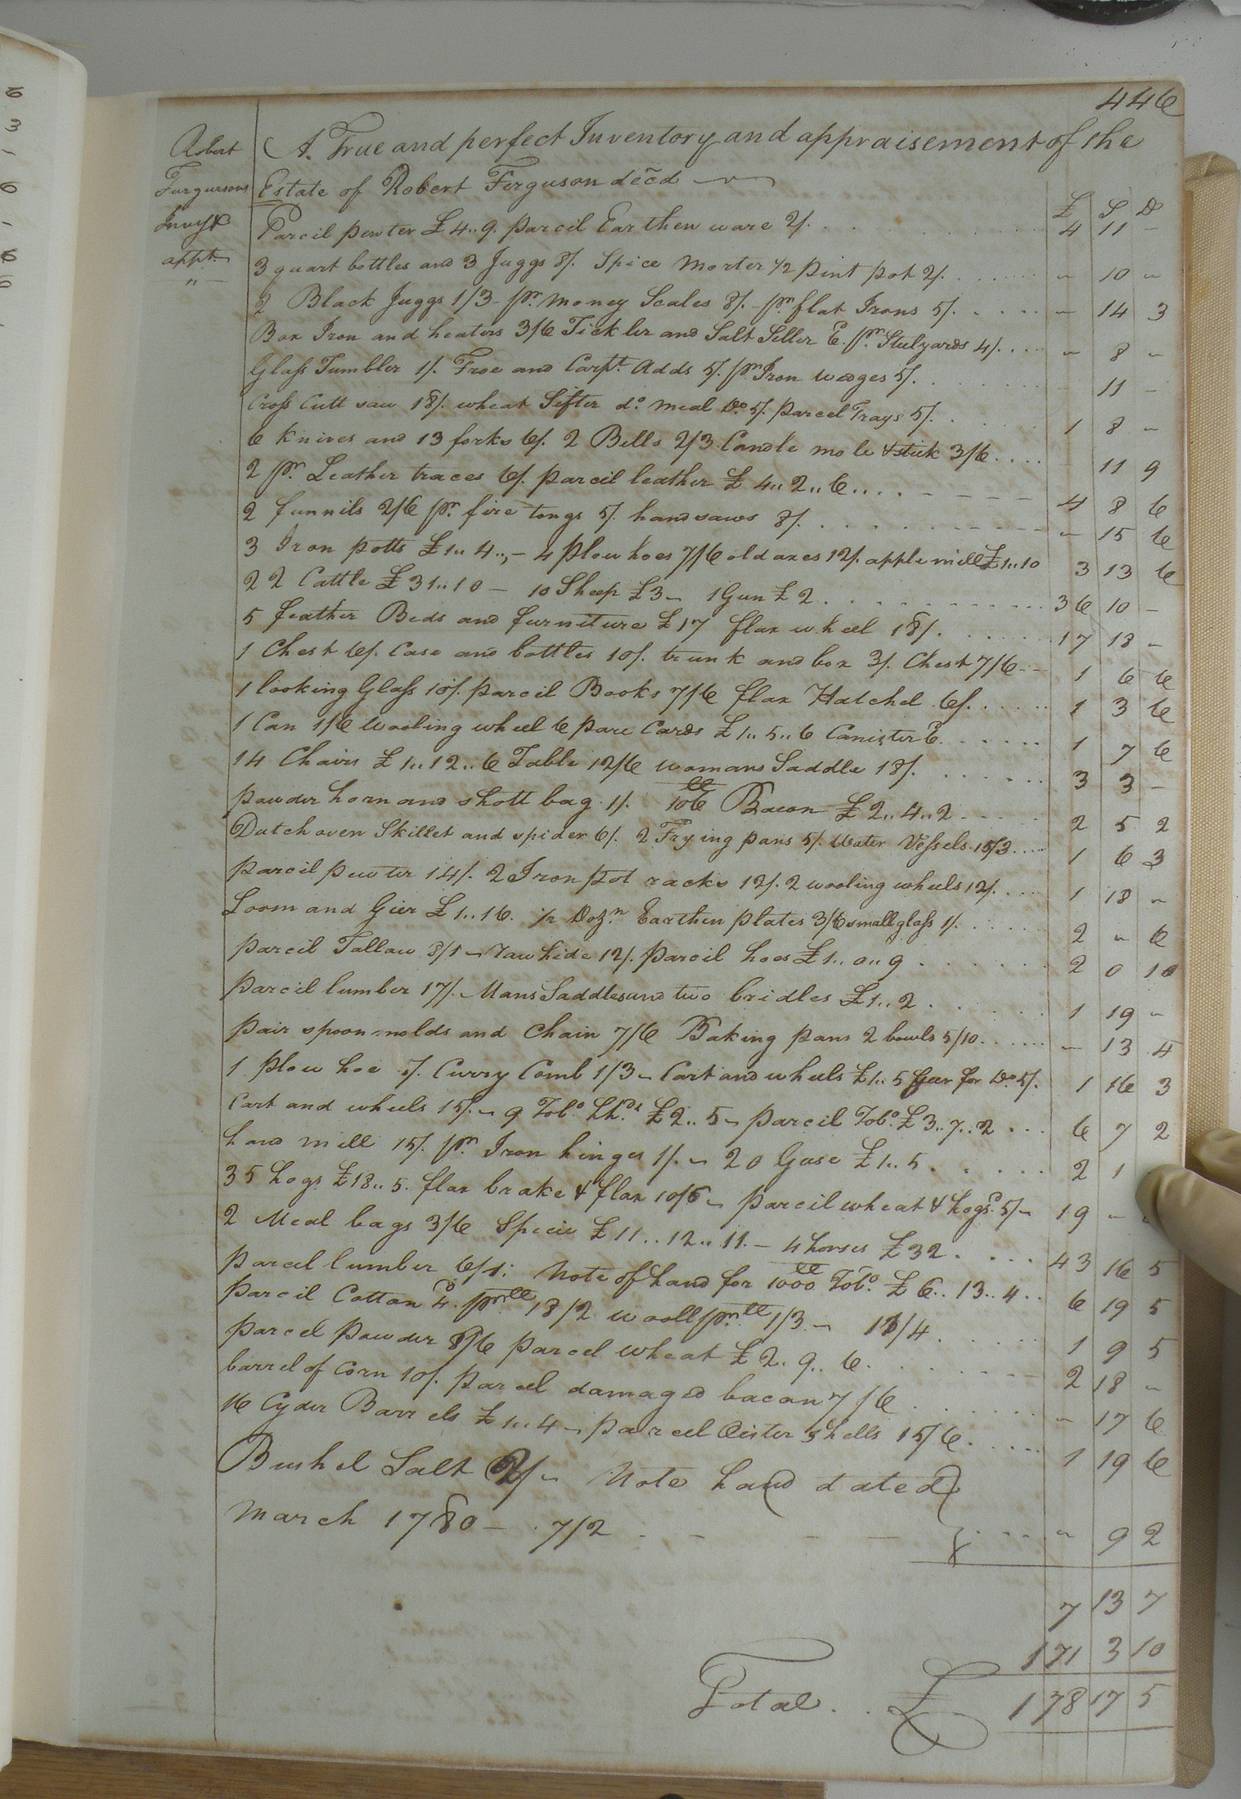 446
A True and perfect Inventory and appraisement of the
Robert Fergusons Invy & appt
Estate of Robert Ferguson decd
£ S D
Parcil pewter £4..9. parcil Earthen ware 2/. 4 11 -
3 quart bottles and 3 Juggs 8/. Spice Morter 1/2 pint pot 2/. - 10 -
2 Black Juggs 1/3 - pr. Money Scales 8/. pr. flat Irons 5/. - 14 3
Box Iron and heaters 3/6 Tickler and Salt Seller 6. pr. Stulyards 4/. - 8 -
Glass Tumbler 1/. Froe and Carpt. Adds 5/. pr Iron wedges 5/. 11 -
Cross Cutt saw 18/. wheat Sifter do. meal Do 5/. parcel Trays 5/. 1 8 -
6 Knives and 13 forks 6/. 2 Bells 2/3 Candle mole & stick 3/6 11 9
2 pr. Leather traces 6/. parcil leather £4..2..6 4 8 6
2 funnils 2/6 pr. fire tongs 5/. hand saws 8/. - 15 6
3 Iron potts £1..4..- 4 plow hoes 7/6 old axes 12/. apple mill £1..10 3 13 6
22 Cattle £31..10 - 10 Sheep £3 - 1 Gun £2 36 10 -
5 feather Beds and furniture £17 flax wheel 18/. 17 18 -
1 Chest 6/. Case and bottles 10/. trunk and box 3/. Chest 7/6 1 6 6
1 looking Glass 10/. parcil Books 7/6 flax Hatchel 6/. 1 3 6
1 Can 1/6 wooling wheel 6 pare Cards £1..5..6 Canister 6. 1 7 6
14 Chairs £1..12..6 Table 12/6 womans Saddle 18/. 3 3 -
powder horn and shott bag 1/. 106 ll Bacon £2..4..2 2 5 2
Dutch oven Skillet and spider 6/. 2 Frying pans 5/. Water Vessels 15/3 1 6 3
parcil pewter 14/. 2 Iron pot racks 12/. 2 wooling wheels 12/. 1 18 -
Loom and Gier £1..16. 1/2 Dozn. Earthen plates 3/6 small glass 1/. 2 - 6
parcil Tallow 8/1 - raw hide 12/. parcil hoes £1..0..9 2 0 10
parcil lumber 17/. Mans Saddles and two bridles £1..2 1 19 -
pair spoon molds and Chain 7/6 Baking pans 2 bowls 5/10 - 13 4
1 plow hoe 5/. Curry Comb 1/3 - Cart and wheels £1..5 Geer for Do 5/. 1 16 3
Cart and wheels 15/. - 9 Tobo. Hhds £2..5 - parcil Tobo. £3..7..2 6 7 2
hand mill 15/. pr. Iron hinges 1/. - 20 Gese £1..5 2 1
35 hogs £18..5. flax brake & flax 10/6 - parcil wheat & hogs. 5/- 19 -
2 Meal bags 3/6 Specie £11..12..11. - 4 horses £32 43 16 5
parcel lumber 6/1. Note of hand for 1000 ll Tobo. £6..13..4 6 19 5
parcil Cotton 4d. pr ll 18/2 wooll pr ll 1/3 - 11/4 1 9 5
parcel powder 8/6 parcel wheat £2..9..6. 2 18 -
barrel of corn 10/. parcel damaged bacon 7/6 - 17 6
16 Cyder Barrels £1..4 - parcel Oister Shells 15/6 1 19 6
Bushel Salt 2/- Note hand dated
March 1780 - 7/2 - 9 2
7 13 7
171 3 10
Total £ 178 17 5